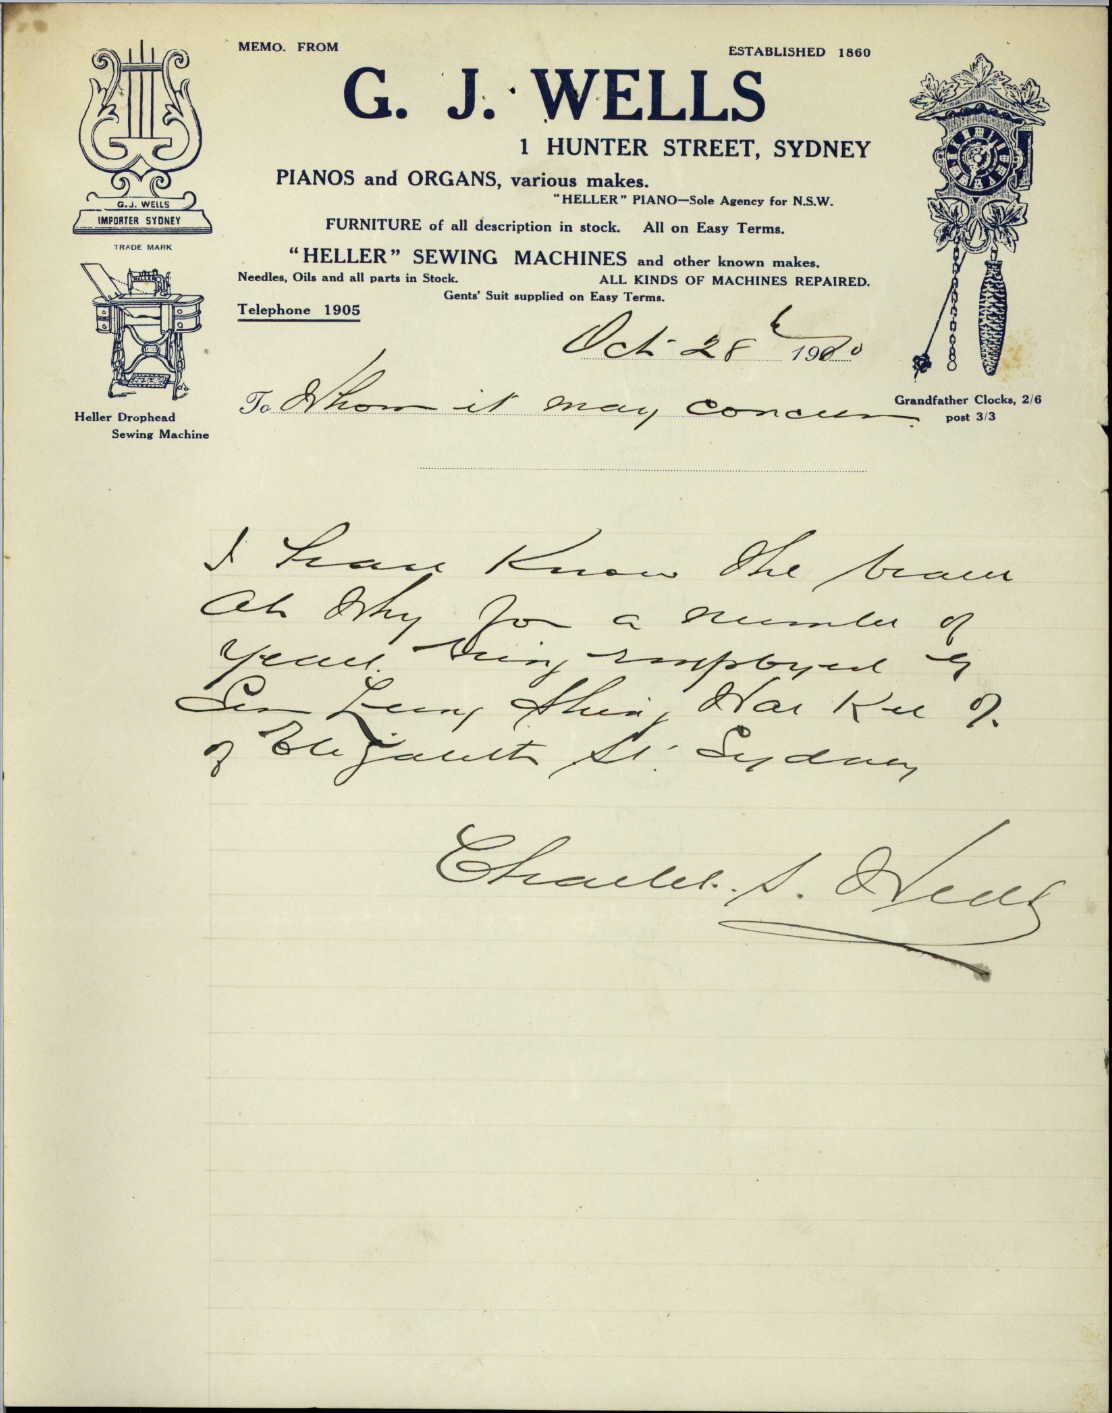 MEMO. FROM
ESTABLISHED 1860
G. J. WELLS
1 HUNTER STREET, SYDNEY
PIANOS and ORGANS, various makes.
"HELLER" PIANO—Sole Agency for N.S.W.
FURNITURE of all description in stock. All on Easy Terms.
"HELLER" SEWING MACHINES and other known makes.
Needles, Oils and all parts in Stock. ALL KINDS OF MACHINES REPAIRED.
Gents' Suit supplied on Easy Terms.
Telephone 1905
G.J. WELLS
IMPORTER SYDNEY
TRADE MARK
Heller Drophead
Sewing Machine
Grandfather Clocks, 2/6
post 3/3
Oct 28
To Whom it may concern
I have Know the bearer
Ah Why for a number of
years being employed by
Sun Leung Shing War Kee of
of Elizabeth St. Sydney
Charles S. Wells